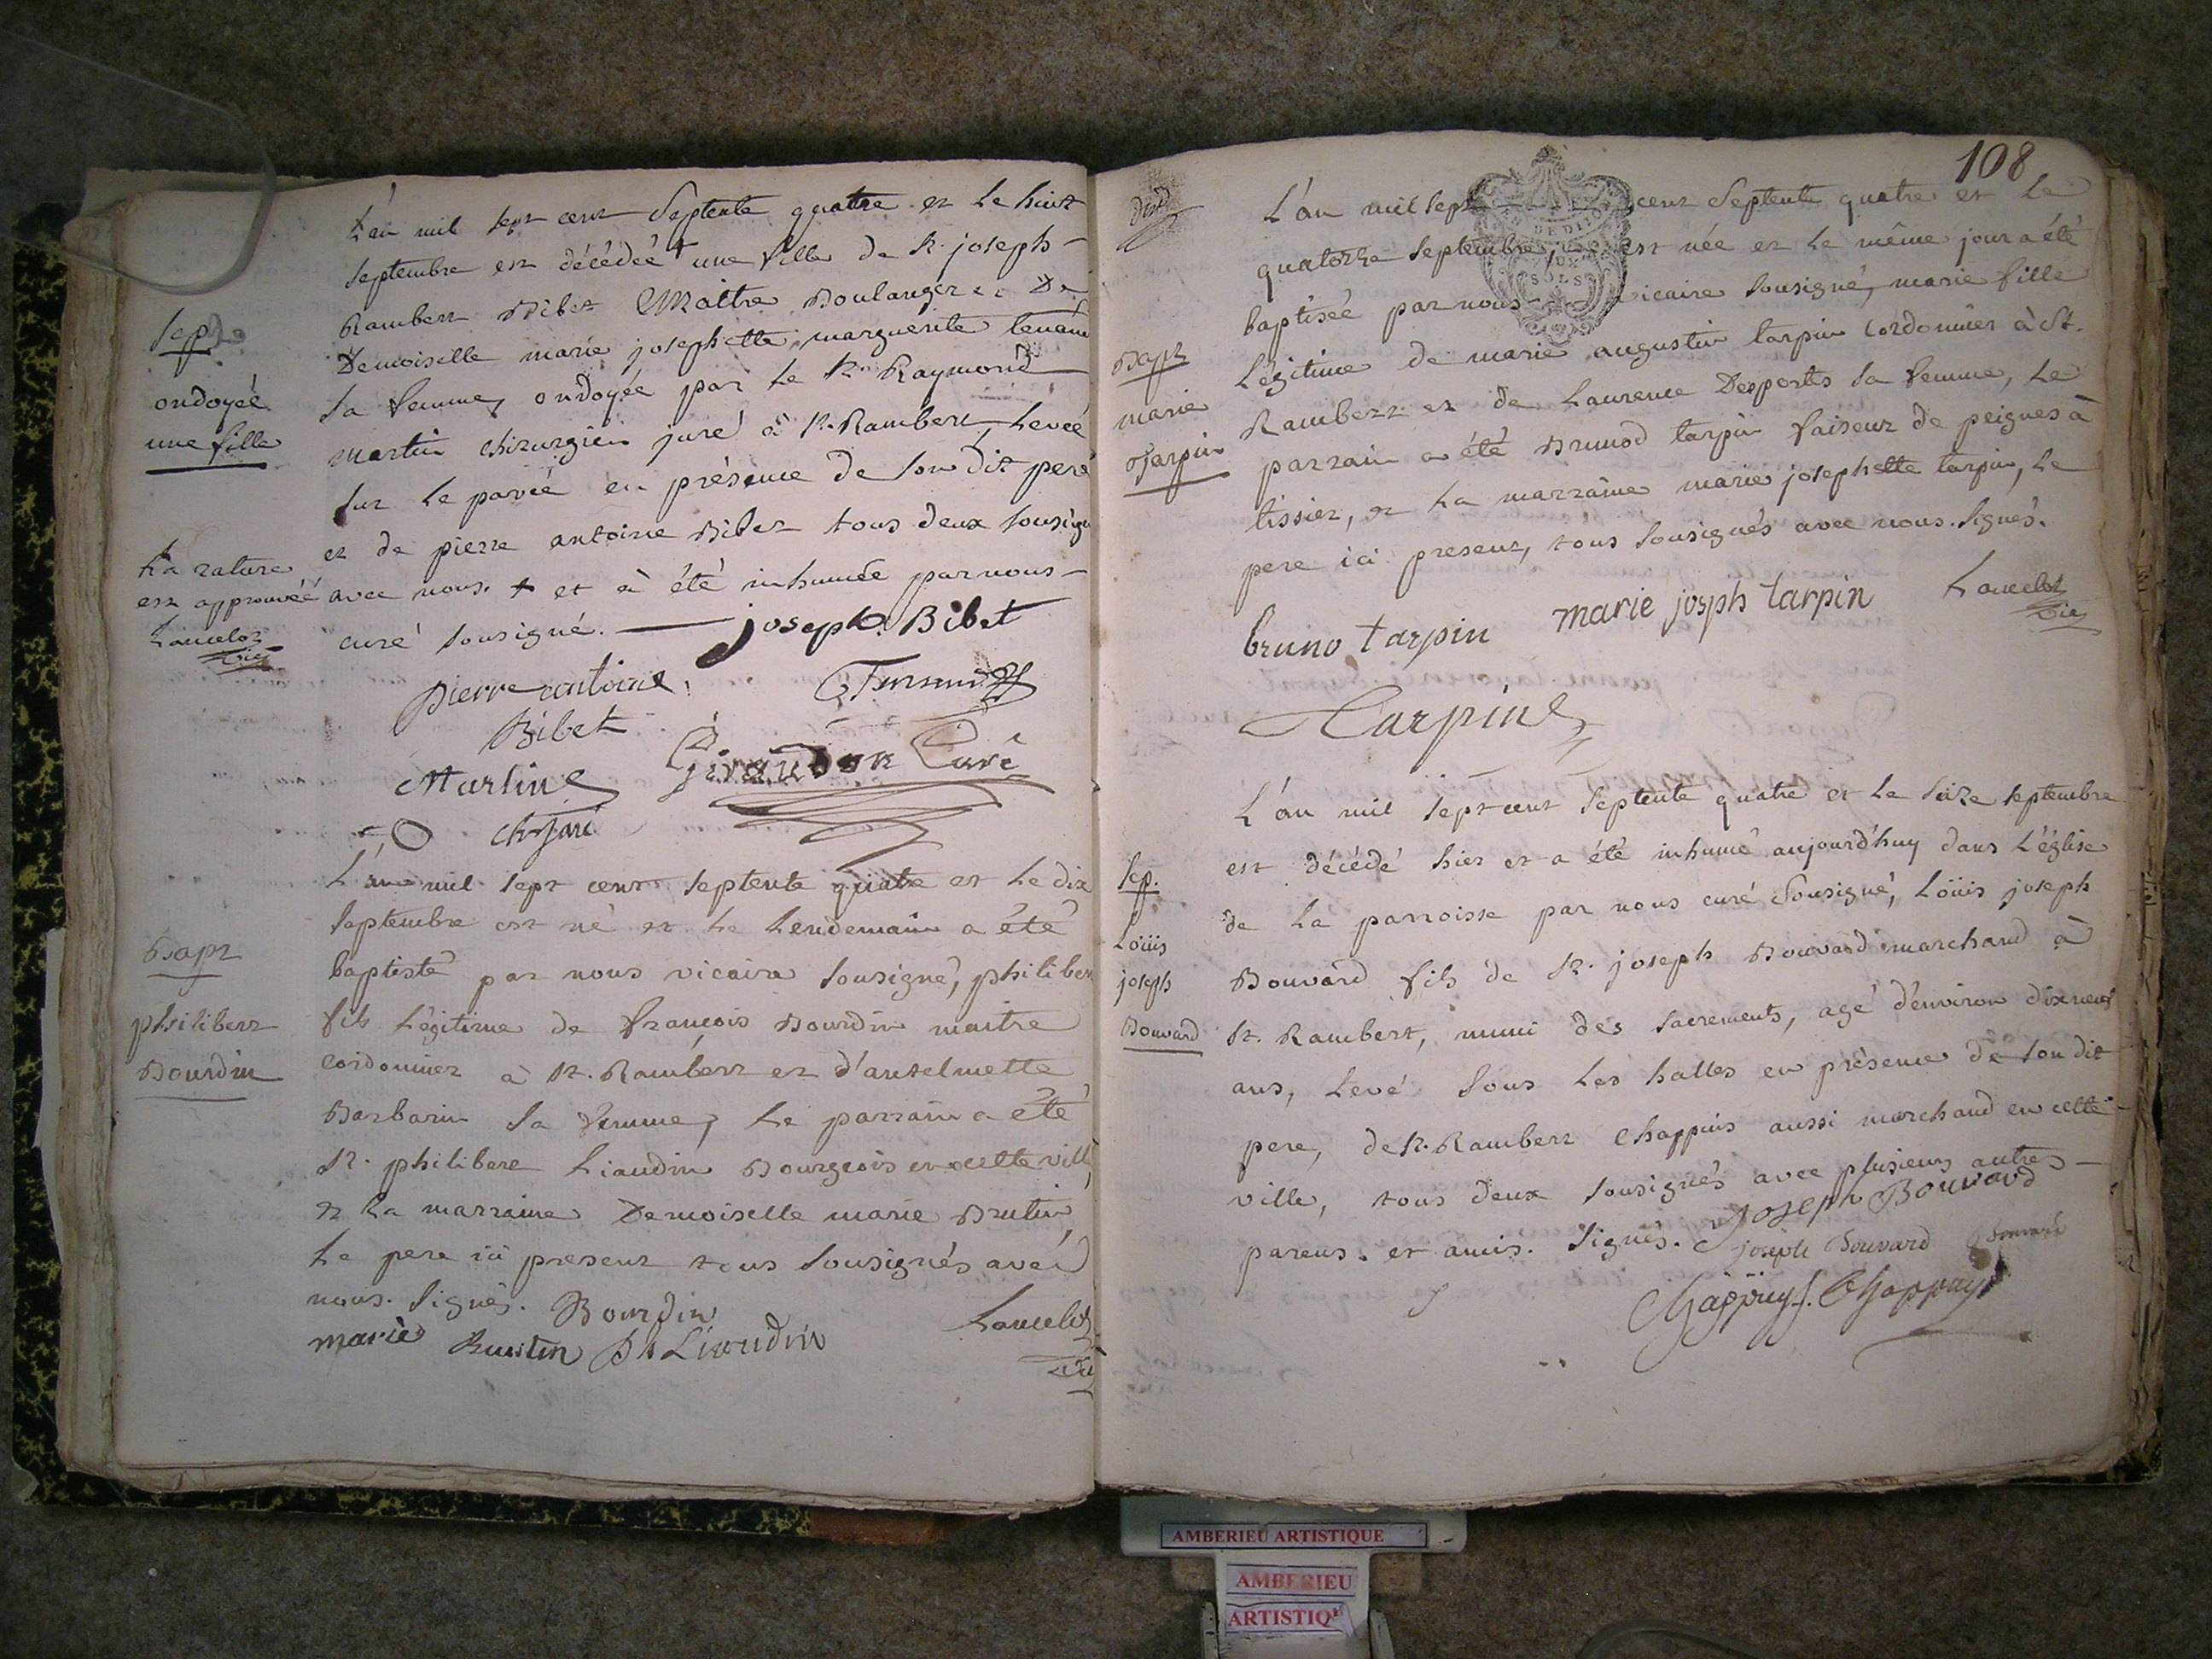 L'an mil sept cent Septente quatre et le huit
septembre est décédeé + une fille de sr. joseph
Rambert Bibet Maitre Boulanger et De
Demoiselle marie josephette marguerite tenand
sa femme, ondoyée par le sr. Raymond
martin chirurgien juré à st. Rambert, levée
sur le pavée en présence de son dit pere
et de pierre antoine Bibet tous deux sousign
avec nous. + et à été inhumée par nous
curé sousigné. joseph. Bibet
sep.
ondoyeé
une fille
La rature
est approuvéé
Lancelot
vic.
pierre antoine
Bibet
Martin
chr juré
Curé
L'an mil sept cent septente quatre et le dix
septembre est né et le lendemain a été
baptisté par nous vicaire sousigné, philiber
fils légitime de françois Bourdin maitre
cordonnier à st. Rambert et d'antelmette
Barbarin sa femme, le parrain a été
sr. philibert Liaudin Bourgeois en cette ville,
et la marraine Demoiselle marie Brutin
le pere ici present tous sousignés avec
nous. signés. Bourdin
Lancelot
marie Ph Liaudin
vic
Bapt
philibert
Bourdin
108
L'an mil sept cent Septente quatre et le
quatorze septembre, est née et le même jour a été
baptisée par nous vicaire sousigné, marie fille
légitime de marie augustin tarpin cordonnier à st.
Rambert et de laurence Desportes sa femme, le
parrain a été Brunod tarpin faiseur de peignes à
tissier, et la marraine marie josephette tarpin, le
pere ici present, tous sousignés avec nous. signés.
Bapt
marie
tarpin
DEUX
SOLS
bruno tarpin marie josph tarpin Lancelot
vic
Tarpin
L'an mil sept cent septente quatre et le seize septembre
est décédé hier et a été inhumé aujourd'huy dans l'église
de la parroisse par nous curé sousigné, Loüis joseph
Bouvard fils de sr. joseph Bouvard marchand à
st. Rambert, muni des sacrements, agé d'environ dixneuf
ans, levé sous les halles en présence de son dit
pere, de sr. Rambert Chappuis aussi marchand en cette
ville, tous deux sousignés avec plusieurs autres
parens. et amis. signés. Joseph Bouvard
joseph Bouvard Bouvard
Chappuys. Chappuys
Sep.
Loüis
joseph
Bouvard
AMBERIEU ARTISTIQUE
AMBERIEU
ARTISTIQ